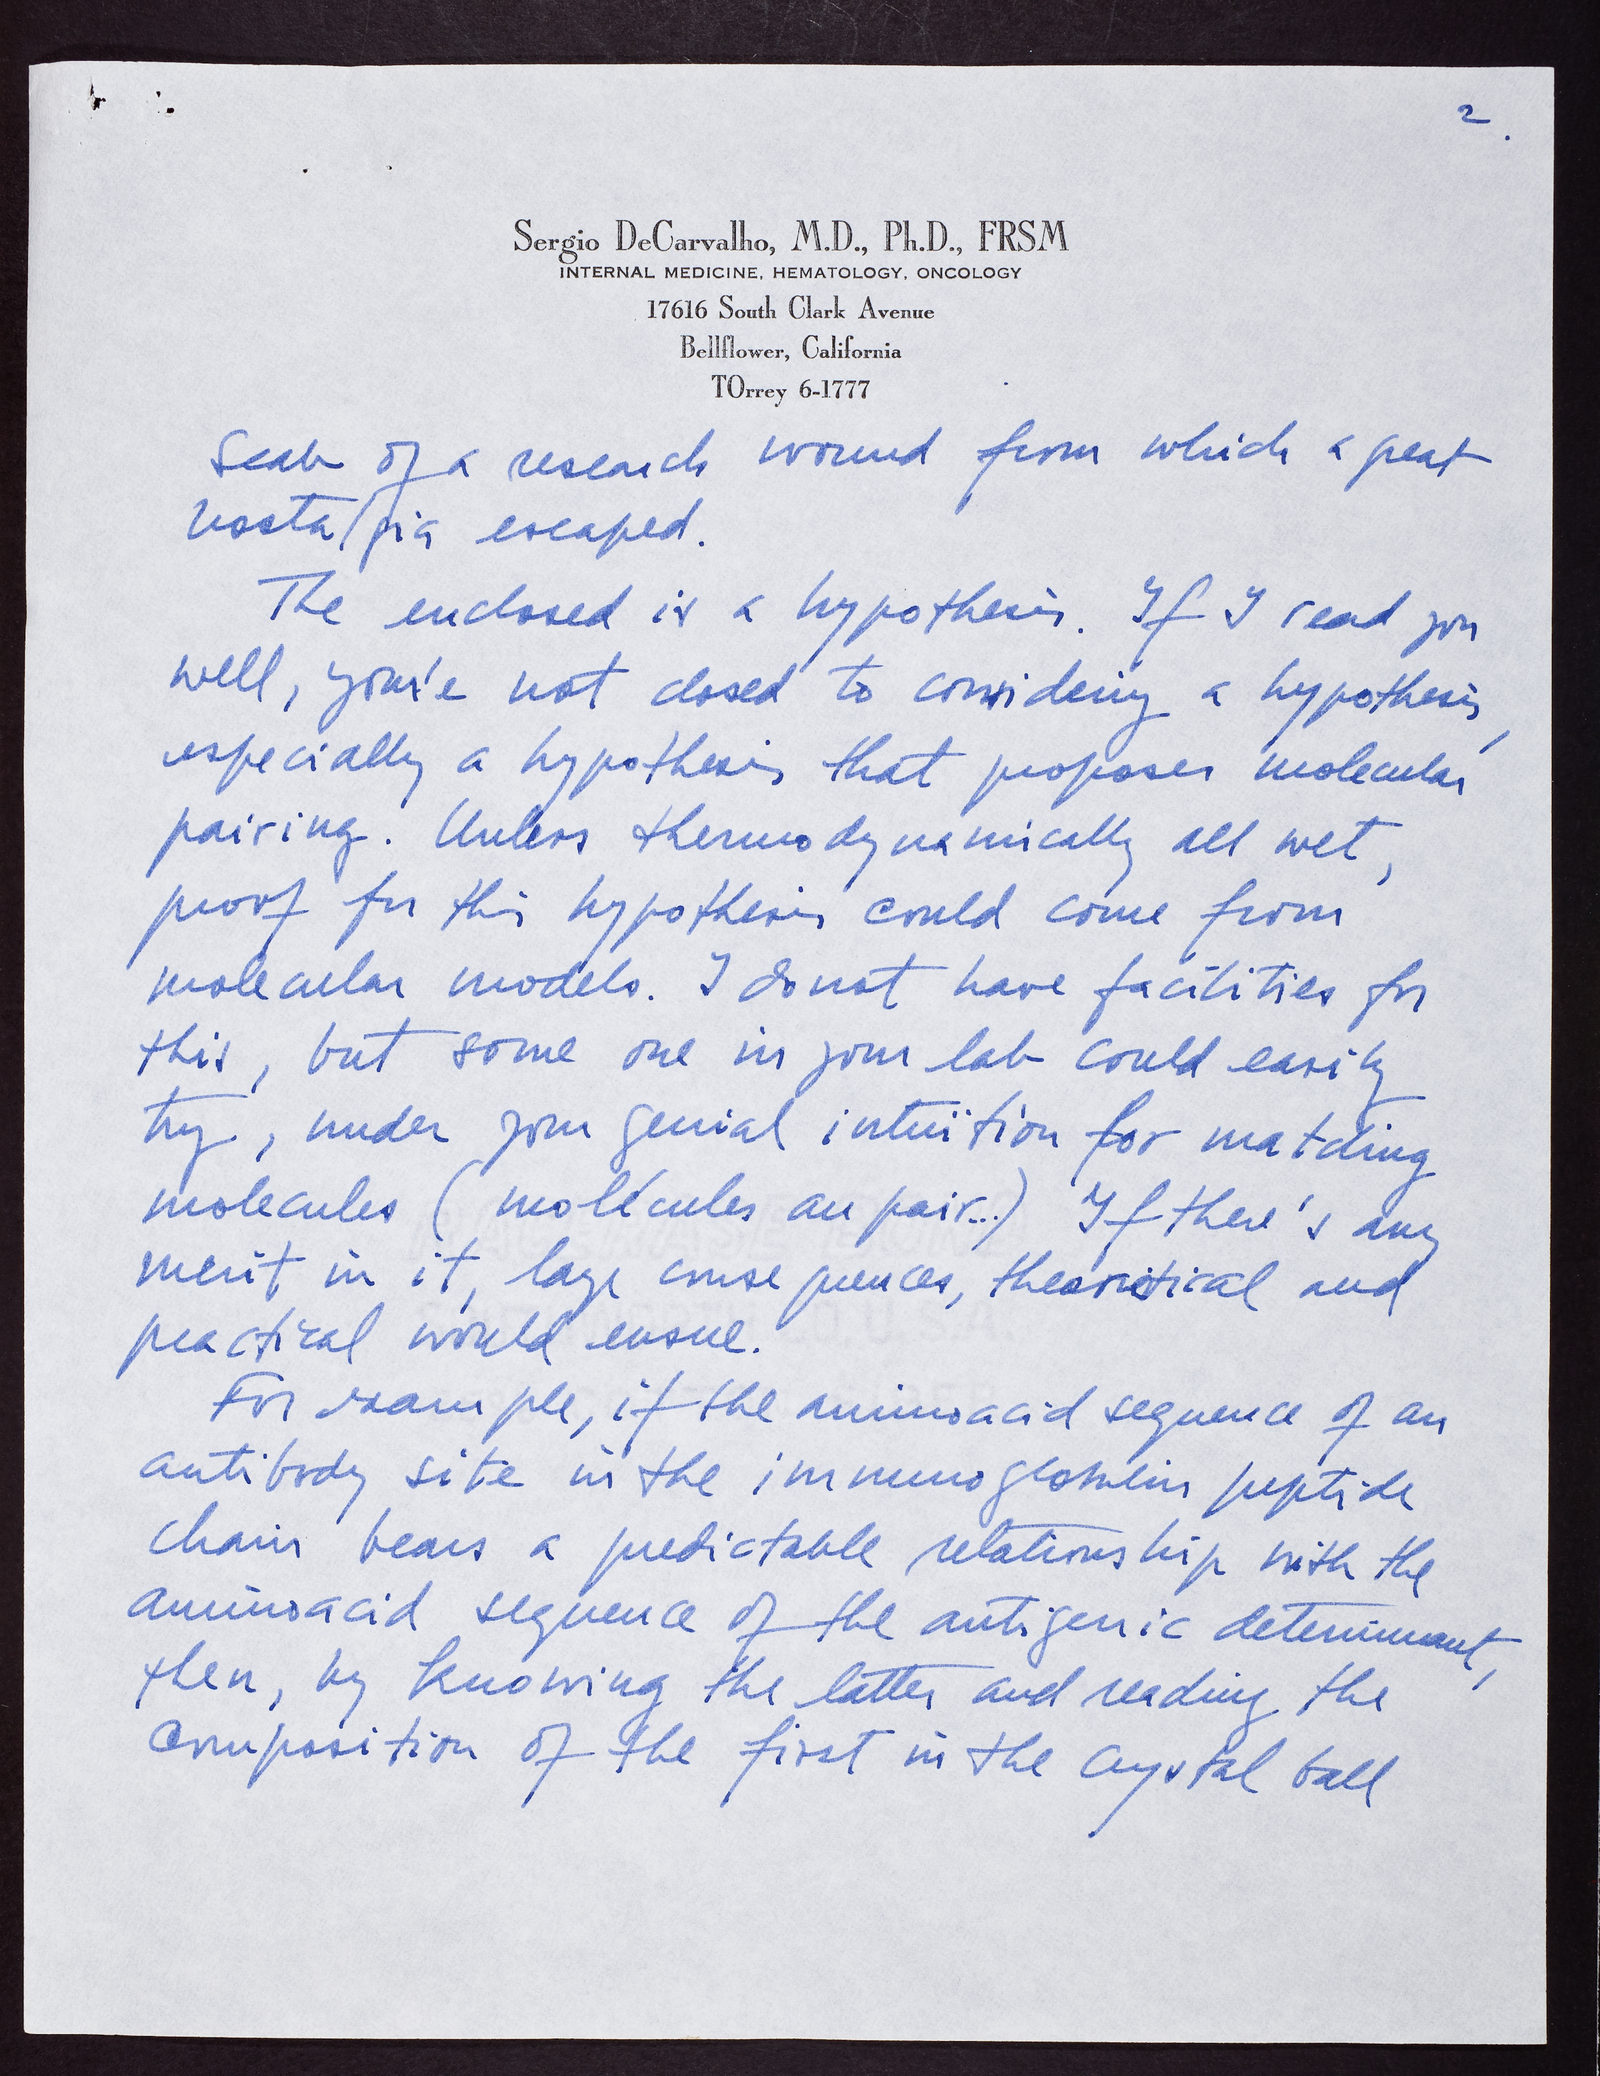 2.
Sergio DeCarvalho, M.D., Ph.D., FRSM
INTERNAL MEDICINE, HEMATOLOGY, ONCOLOGY
17616 South Clark Avenue
Bellflower, California
TOrrey 6-1777
Scab of a research wound from which a great
nostalgia escaped.
The enclosed is a hypothesis. If I read you
well, you're not closed to considering a hypothesis,
especially a hypothesis that proposes molecular
pairing. Unless thermodynamically all wet,
proof for this hypothesis could come from
molecular models. I do not have facilities for
this, but some one in your lab could easily
try, under your genial intuïtion for matching
molecules (molécules au pair...) If there's any
merit in it, large consequences, theoretical and
practical would ensue.
For example, if the aminoacid sequence of an
antibody site in the immunoglobulin peptide
chain bears a predictable relationship with the
aminoacid sequence of the antigenic determinant,
then, by knowing the latter and reading the
composition of the first in the crystal ball